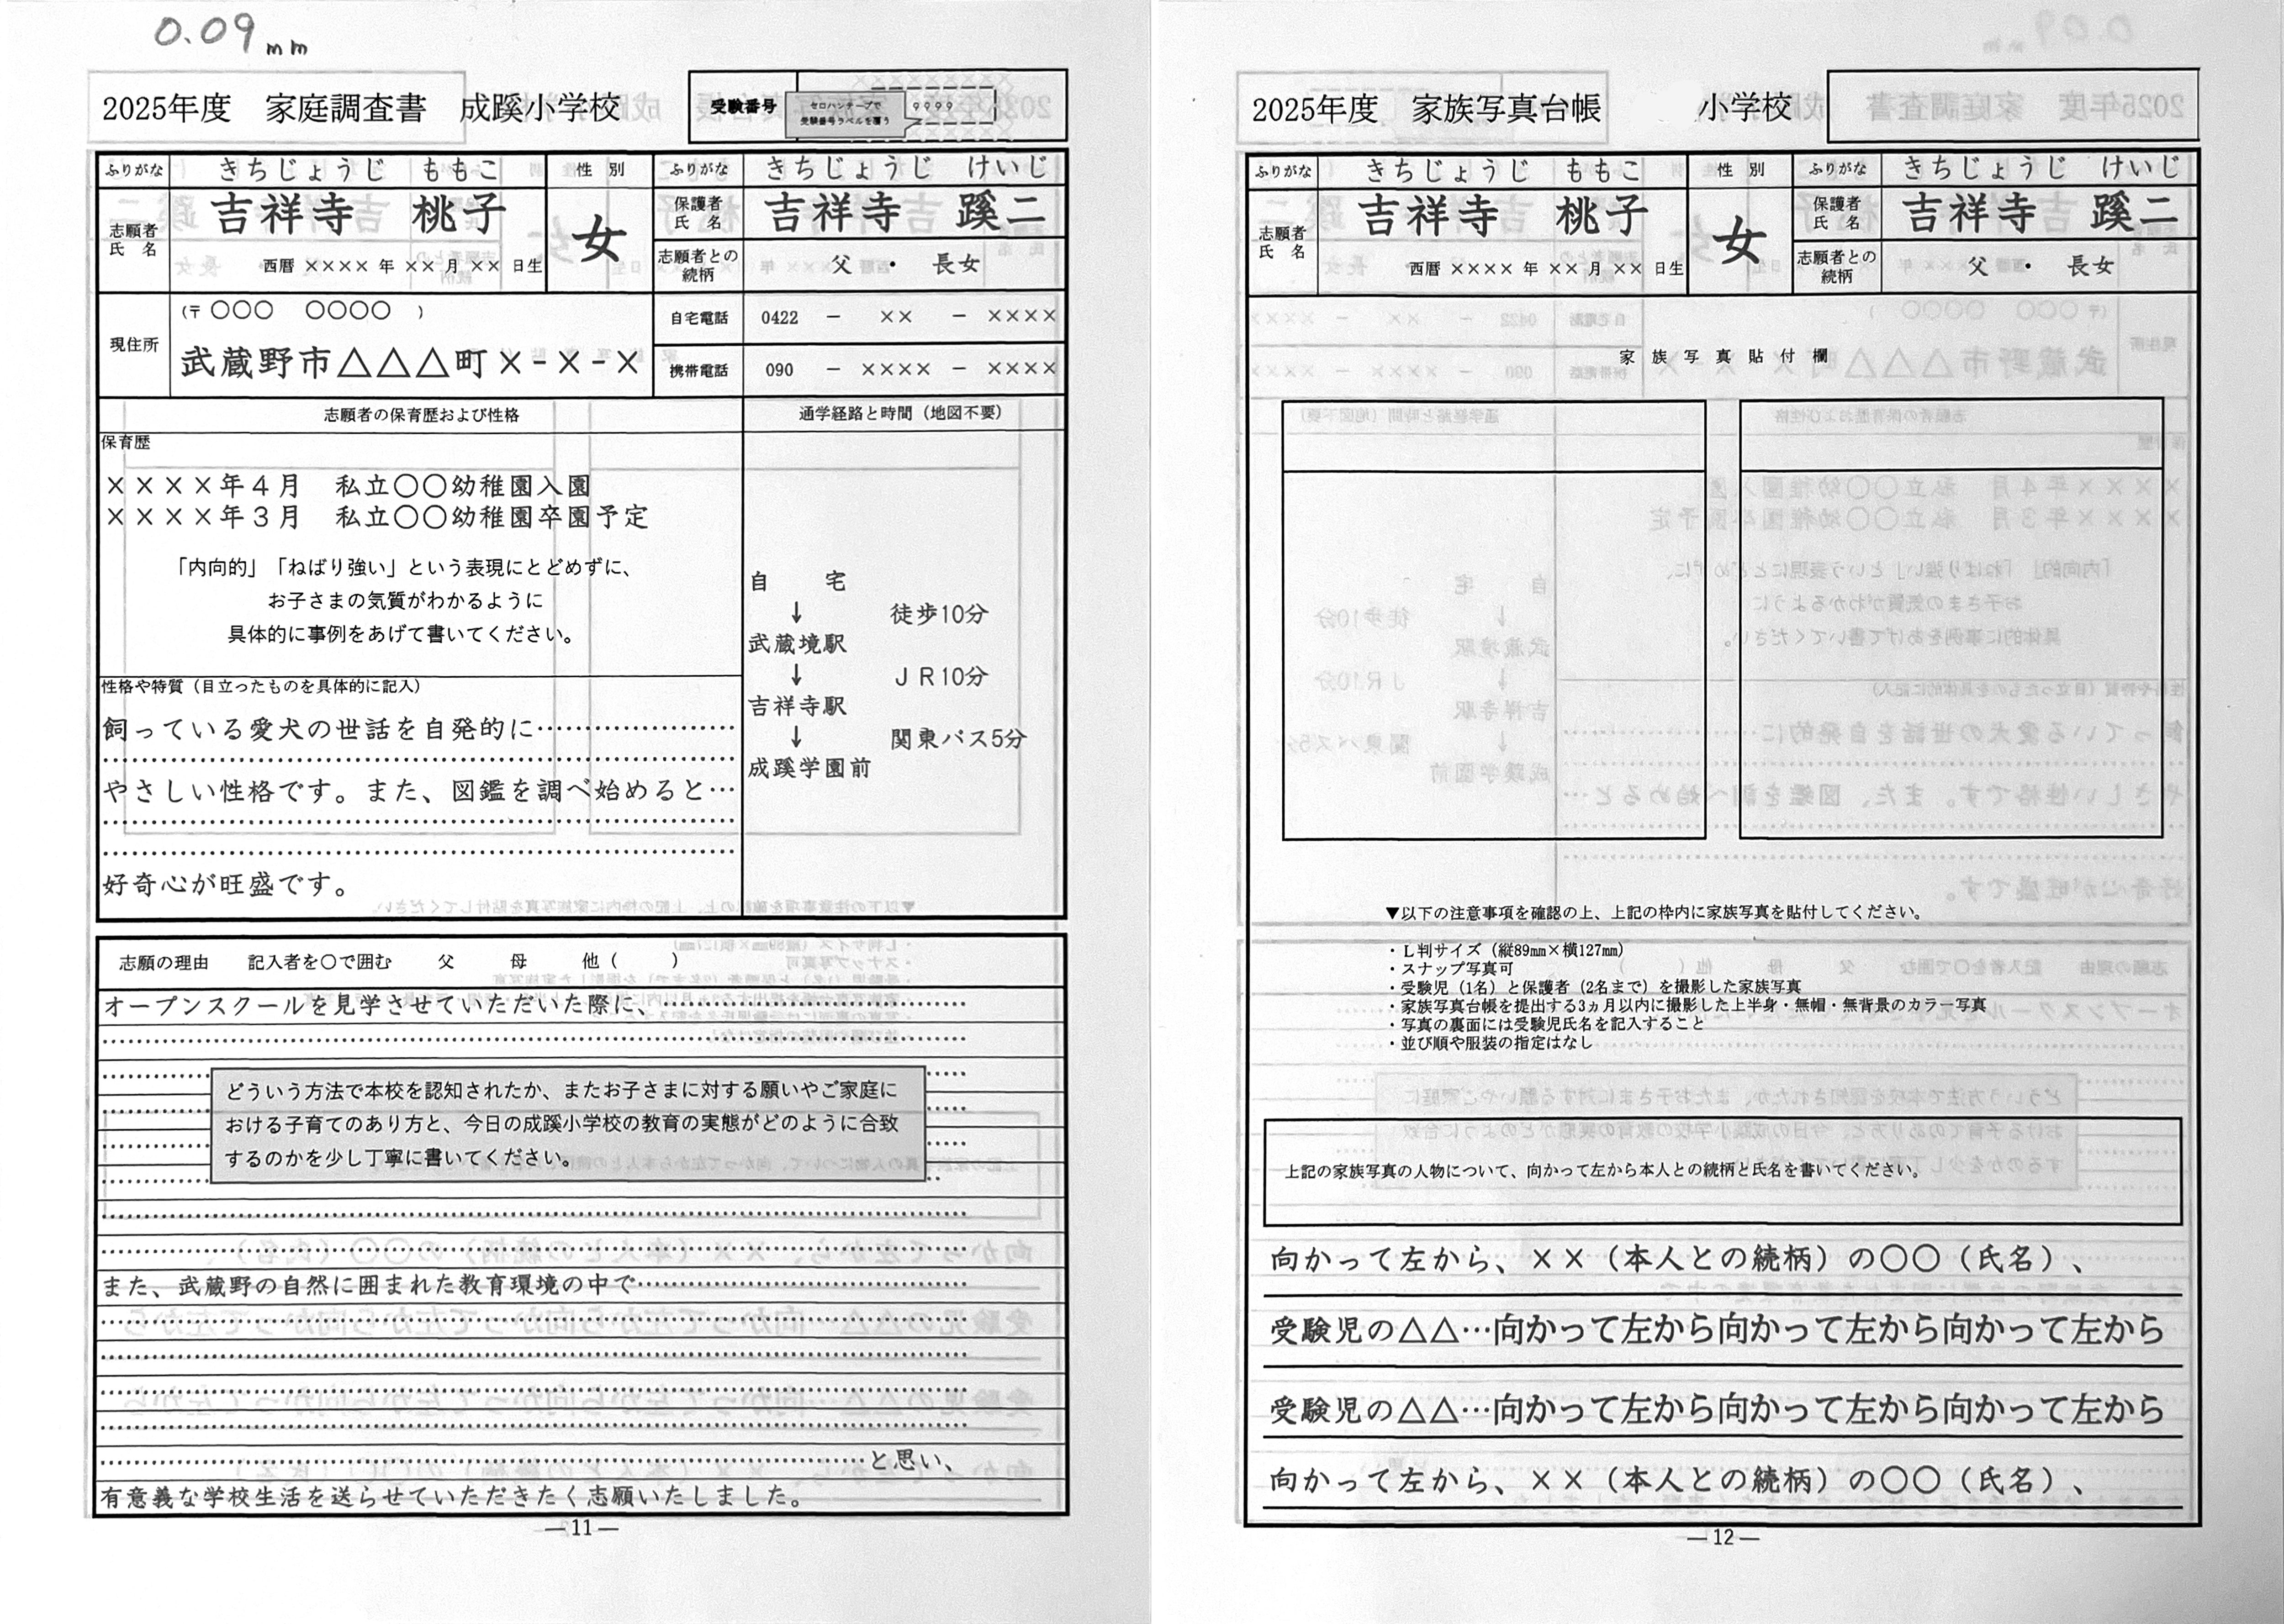 0.09mm
2025年度　家庭調査書　成蹊小学校
受験番号
セロハンテープで
受験番号ラベルを覆う
9999
ふりがな　きちじょうじ　ももこ　性別　ふりがな　きちじょうじ　けいじ
志願者氏名　吉祥寺　桃子　女　保護者氏名　吉祥寺　蹊二
西暦 ×××× 年 ×× 月 ×× 日生　志願者との続柄　父　・　長女
現住所　(〒 〇〇〇　〇〇〇〇　)　自宅電話　0422　－　××　－　××××
武蔵野市△△△町×-×-×　携帯電話　090　－　××××　－　××××
志願者の保育歴および性格　通学経路と時間（地図不要）
保育歴
××××年4月　私立〇〇幼稚園入園
××××年3月　私立〇〇幼稚園卒園予定
「内向的」「ねばり強い」という表現にとどめずに、
お子さまの気質がわかるように
具体的に事例をあげて書いてください。
性格や特質（目立ったものを具体的に記入）
飼っている愛犬の世話を自発的に……………………
やさしい性格です。また、図鑑を調べ始めると…
好奇心が旺盛です。
自　宅
↓　徒歩10分
武蔵境駅
↓　ＪＲ10分
吉祥寺駅
↓　関東バス5分
成蹊学園前
志願の理由　記入者を〇で囲む　父　母　他（　　　）
オープンスクールを見学させていただいた際に、……………………
どういう方法で本校を認知されたか、またお子さまに対する願いやご家庭に
おける子育てのあり方と、今日の成蹊小学校の教育の実態がどのように合致
するのかを少し丁寧に書いてください。
また、武蔵野の自然に囲まれた教育環境の中で……………………
……………………と思い、
有意義な学校生活を送らせていただきたく志願いたしました。
―11―
2025年度　家族写真台帳　小学校
ふりがな　きちじょうじ　ももこ　性別　ふりがな　きちじょうじ　けいじ
志願者氏名　吉祥寺　桃子　女　保護者氏名　吉祥寺　蹊二
西暦 ×××× 年 ×× 月 ×× 日生　志願者との続柄　父　・　長女
家族写真貼付欄
▼以下の注意事項を確認の上、上記の枠内に家族写真を貼付してください。
・L判サイズ（縦89㎜×横127㎜）
・スナップ写真可
・受験児（1名）と保護者（2名まで）を撮影した家族写真
・家族写真台帳を提出する3ヵ月以内に撮影した上半身・無帽・無背景のカラー写真
・写真の裏面には受験児氏名を記入すること
・並び順や服装の指定はなし
上記の家族写真の人物について、向かって左から本人との続柄と氏名を書いてください。
向かって左から、××（本人との続柄）の〇〇（氏名）、
受験児の△△…向かって左から向かって左から向かって左から
受験児の△△…向かって左から向かって左から向かって左から
向かって左から、××（本人との続柄）の〇〇（氏名）、
―12―